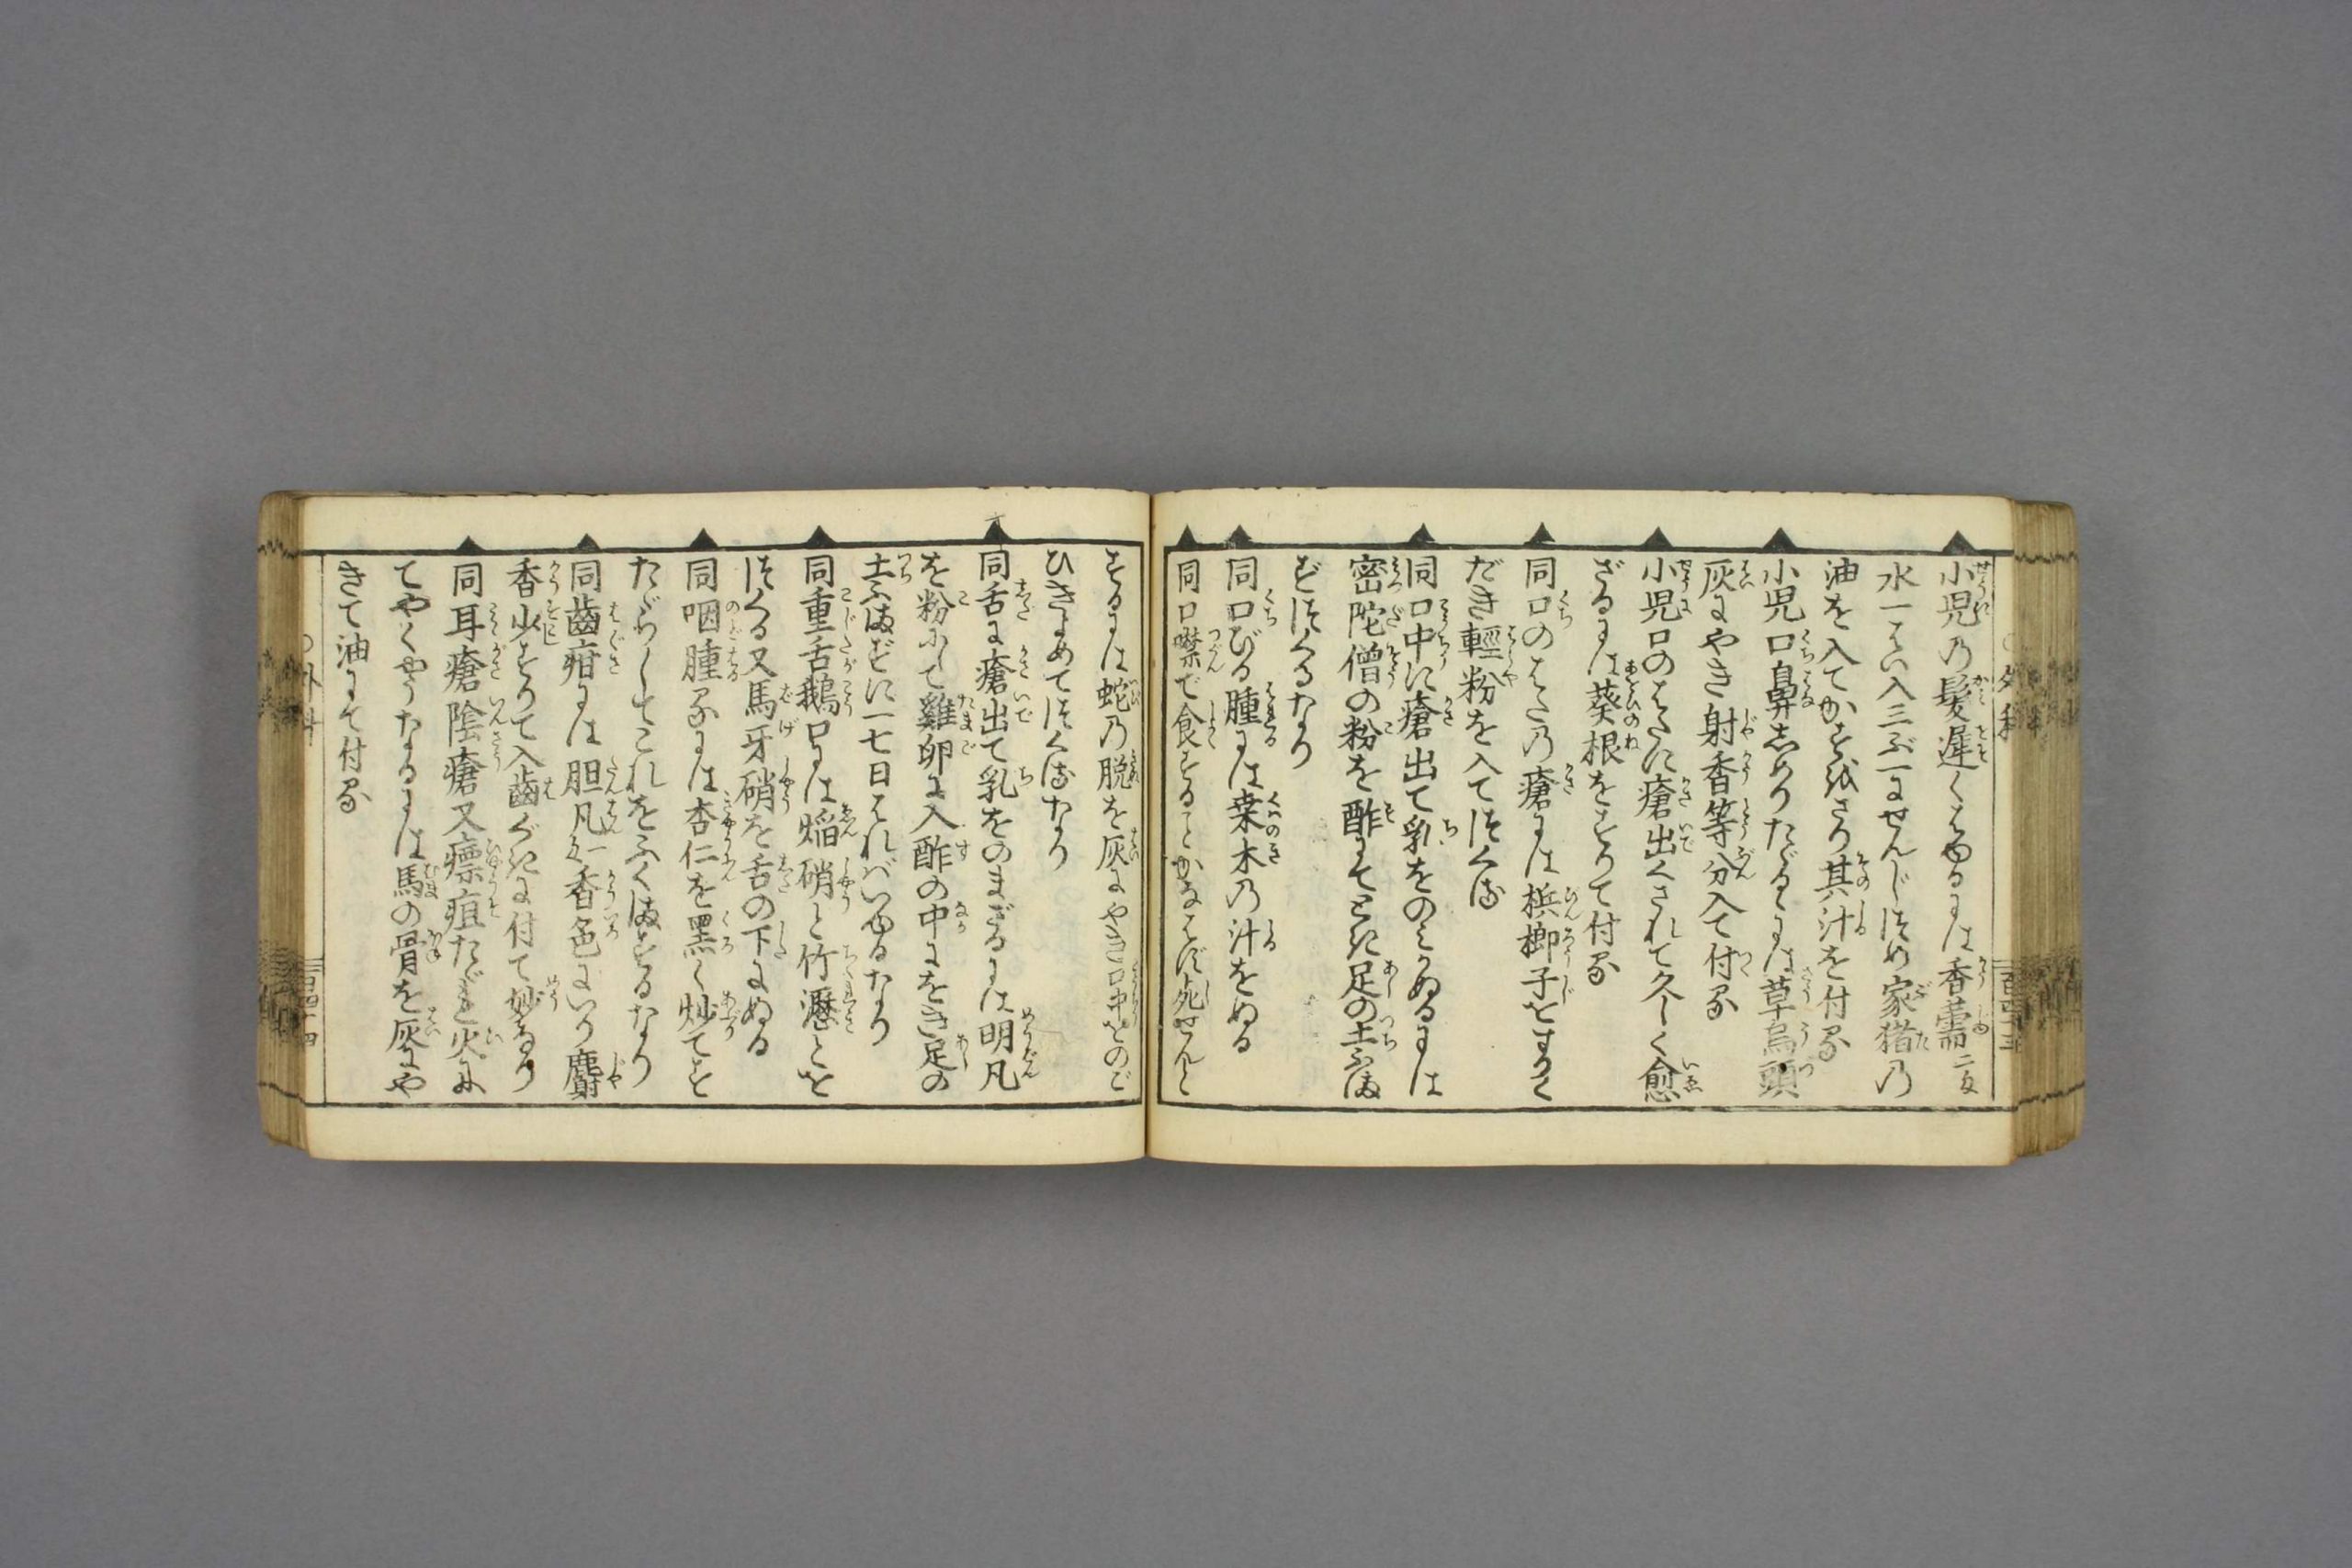 小児の髪遅くはゆるには香薷二匁
水一はい入三ぶ一にせんじつめ家猪の
油を入てかをぬさり其汁を付る
小児口鼻しめりたゞるゝには草烏頭
灰にやき射香等分入て付る
小児口のはたに瘡出くされて久しく愈
ざるには葵根をすりて付る
同口のはたの瘡には梹榔子をすりく
だき軽粉を入てつくる
同口中に瘡出て乳をのみかぬるには
密陀僧の粉を酢にてとき足の土ふま
ずにつくるなり
同口びる腫には桒木の汁をぬる
同口噤で食することかなはず死せんと
するには蛇の脱を灰にやき口中をのご
ひきよめてつくるなり
同舌に瘡出て乳をのまざるには明凡
を粉にして雞卵に入酢の中にをき足の
土ふまずに一七日はれバいゆるなり
同重舌鵝口には焔硝と竹瀝とを
つくる又馬牙硝を舌の下にぬる
同咽腫るには杏仁を黒く炒てを
たゞらしてこれをふくまするなり
同齒疳には胆凡匁一香色にいり麝
香少すりて入齒ぐきに付て妙なり
同耳瘡陰瘡又瘭疽たゞれ火に
てやくやうなるには馬の骨を灰にや
きて油にて付る
○外科
百四十四